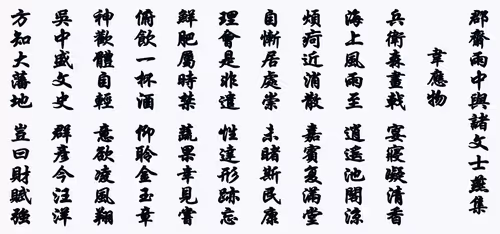 郡齋雨中與諸文士燕集
韋應物
兵衛森畫戟 宴寢凝清香
海上風雨至 逍遙池閣涼
煩疴近消散 嘉賓復滿堂
自慚居處崇 未睹斯民康
理會是非遣 性達形跡忘
鮮肥屬時禁 蔬果幸見嘗
俯飲一杯酒 仰聆金玉章
神歡體自輕 意欲凌風翔
吳中盛文史 群彥今汪洋
方知大藩地 豈曰財賦強